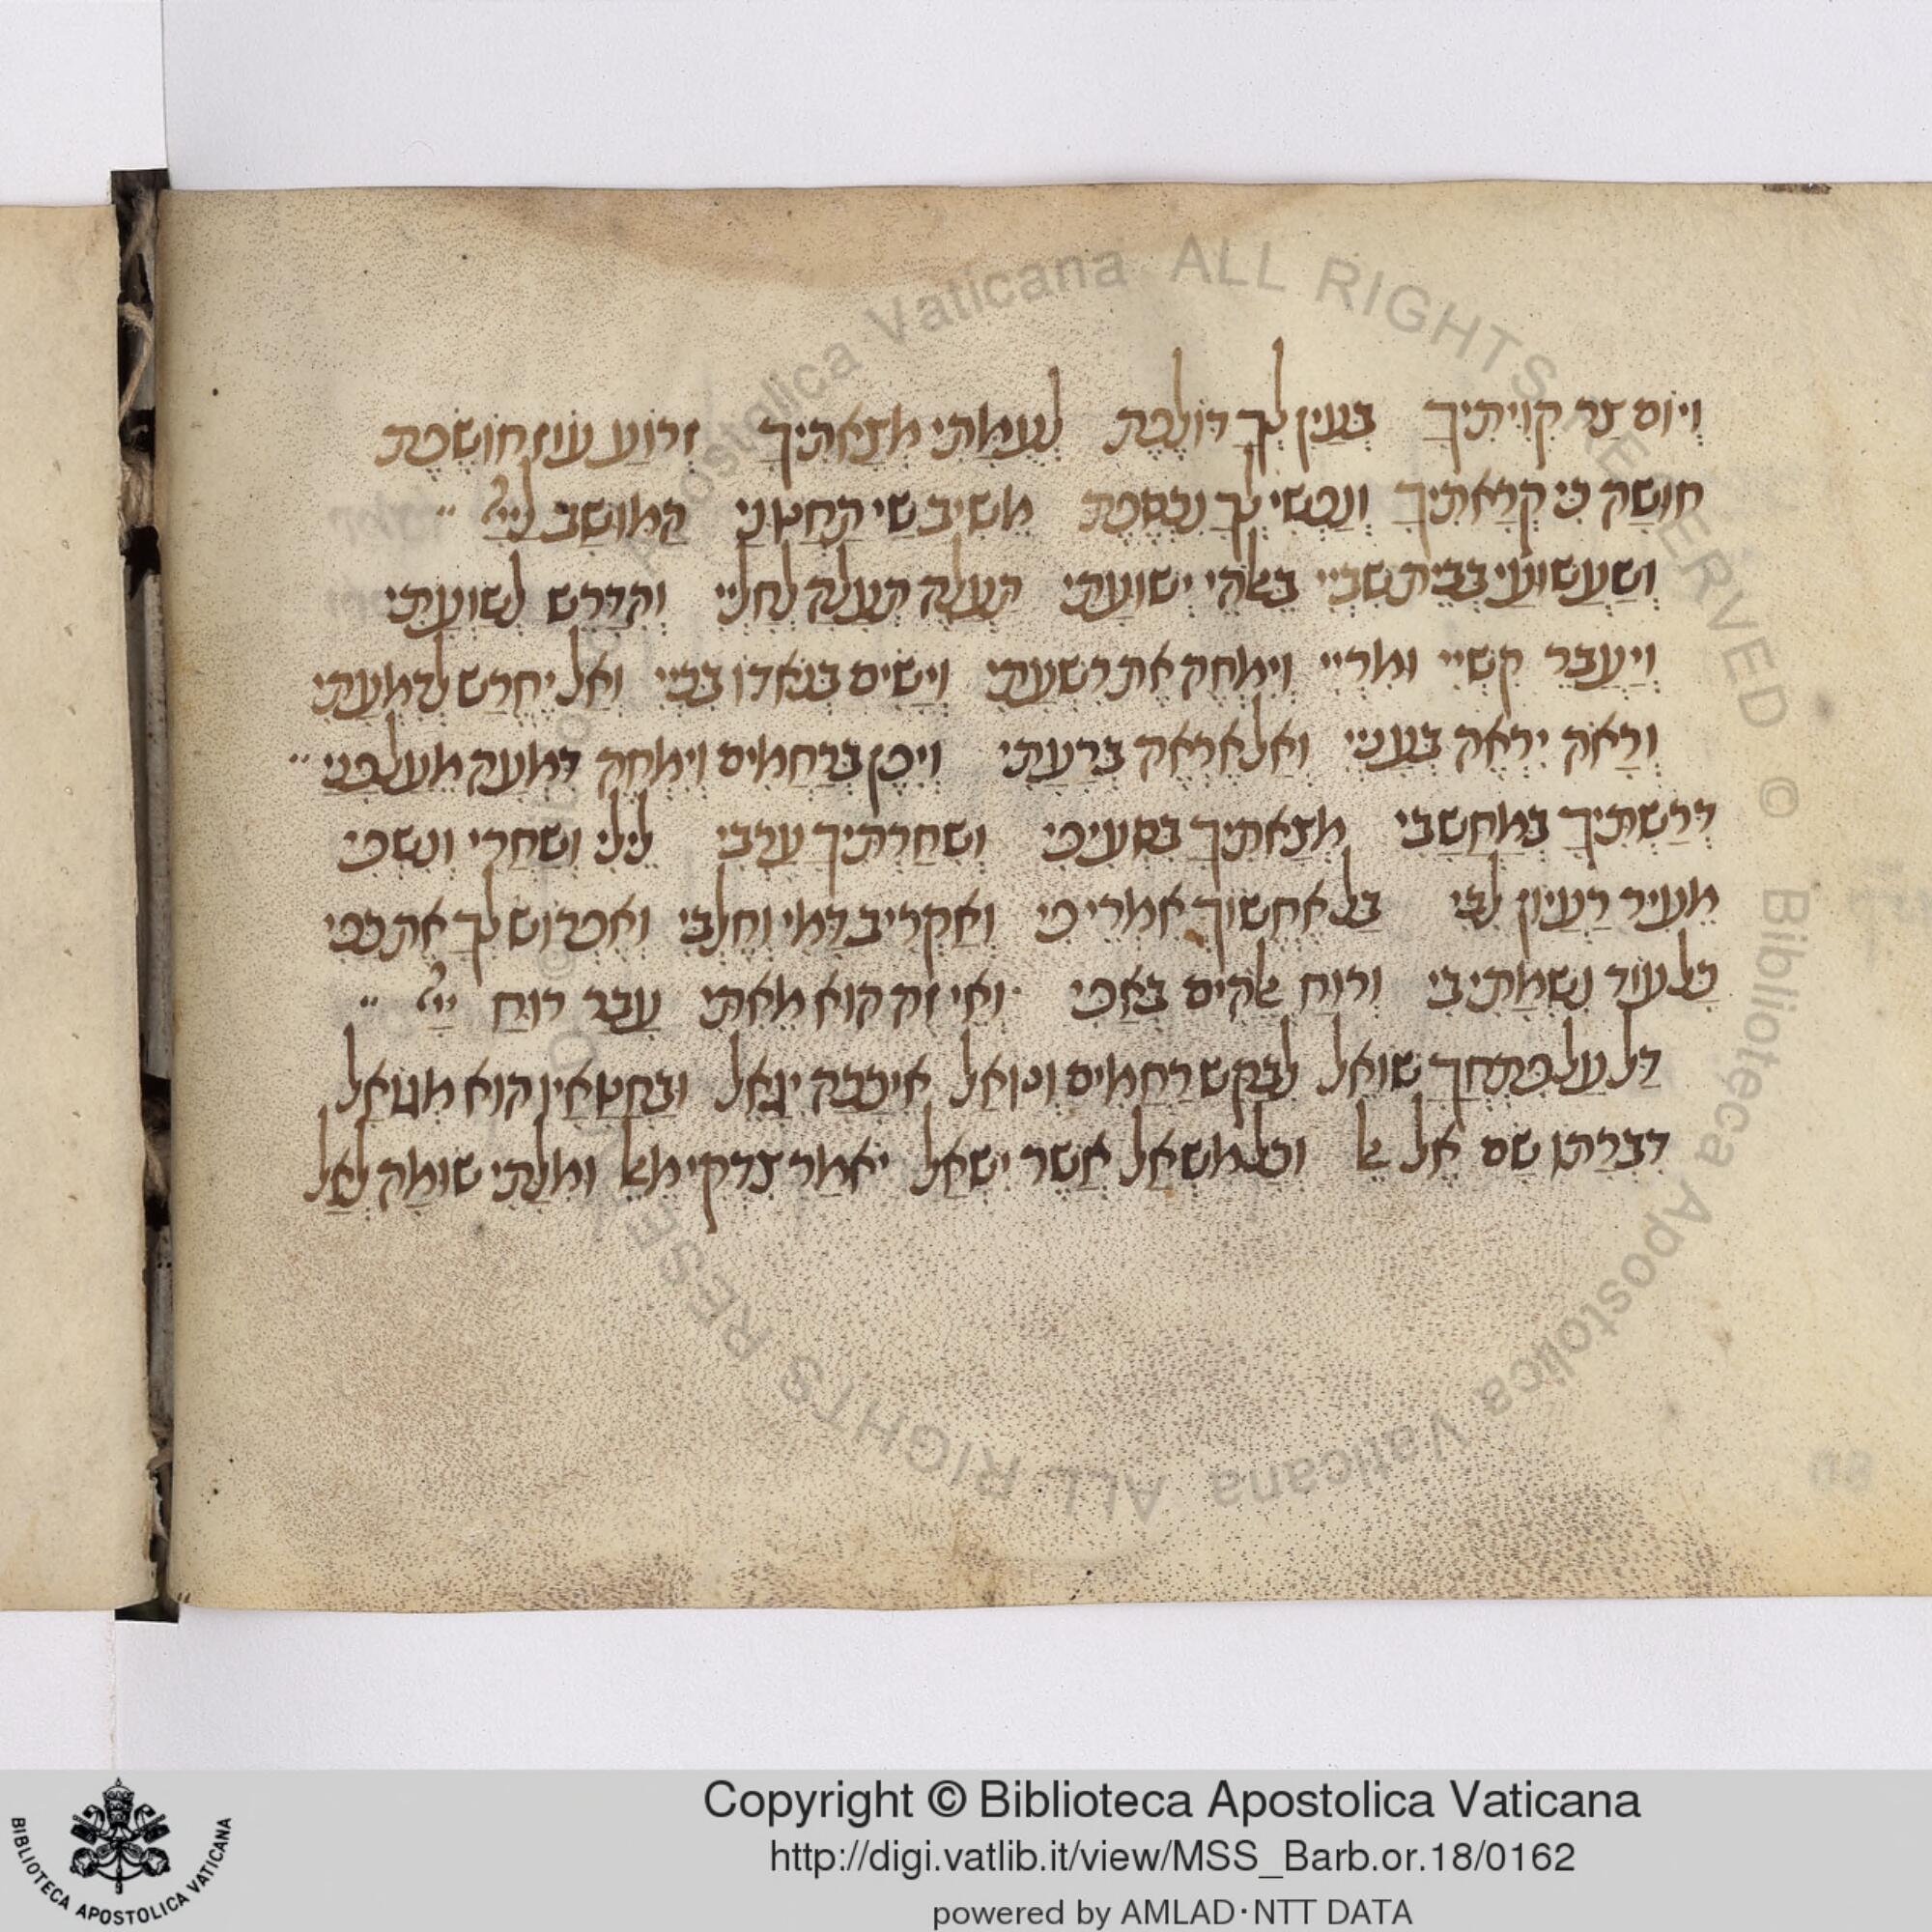 ויום צר קויתיך בעין לך דולפת לעמתי מצאתיך זרוע עוז חושפת
חושה כי קראתיך ונפשי לך נכספת משיב שי החטני המושב ליי
ושעשועי בבית שביי באלהי ישועתי העלה תעלה לחליי והדרש לשועתי
ויעבר קשיי ומריי וימחה את רשעתי וישים בנאדו בכיי ואל יחרש לדמעתי
וראה יראה בעניי ואל אראה ברעתי ויפן ברחמים וימחה דמעה מעל פני
דרשתיך במחשבי מצאתיך בסעיפי ושחרתיך ערבי לילי ושחרי ונשפי
מעיר רעיון לבי בל אחשוך אמרי פי ואקריב דמי וחלבי ואפרוש לך את כפי
כל עוד נשמתי בי ורוח אלהים באפי ואי זה הוא מאתי עבר רוח יי
דל על פתחך שואל לבקש רחמים ונואל איככה יגאל ובחטאיו הוא מגואל
דברתו שם אל אל וכל משאל אשר ישאל יאמר צדקי מאל ומלתי שומה לאל
Copyright © Biblioteca Apostolica Vaticana
http://digi.vatlib.it/view/MSS_Barb.or.18/0162
powered by AMLAD·NTT DATA
BIBLIOTECA APOSTOLICA VATICANA
© Biblioteca Apostolica Vaticana ALL RIGHTS RESERVED © Biblioteca Apostolica Vaticana ALL RIGHTS RESERVED